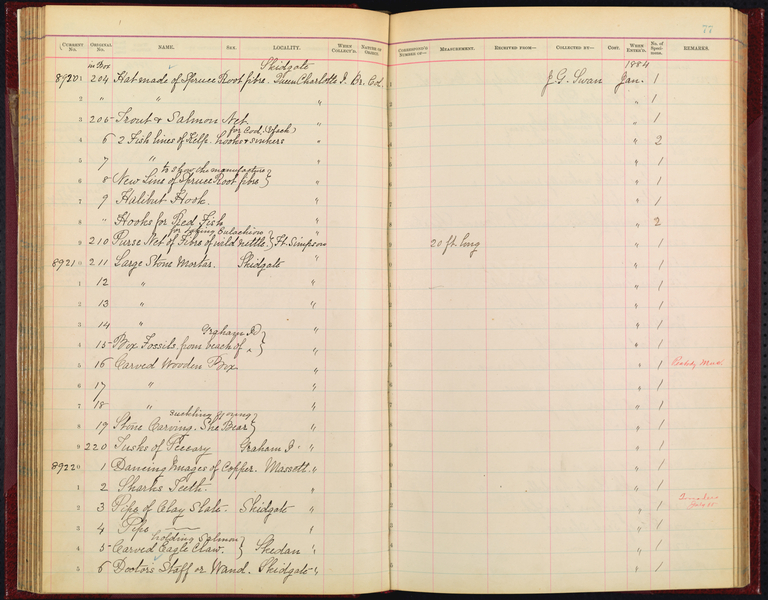 77
CURRENT No. ORIGINAL No. NAME. SEX. LOCALITY. WHEN COLLECT'D. NATURE OF OBJECT. CORRESPOND'G NUMBER OF— MEASUREMENT. RECEIVED FROM— COLLECTED BY— COST. WHEN ENTER'D. No. of Specimens. REMARKS.
in Box Skidgate 1884
89201 204 Hat made of Spruce Root fibre. Queen Charlotte I. Br. Col. J. G. Swan Jan. 1
2 " " " " 1
3 205 Trout & Salmon Net. " " 1
for Cod (Black)
4 6 2 Fish lines of Kelp. hooks & sinkers " " 2
5 7 " " " 1
to show the manufacture
6 8 New Line of Spruce Root fibre } " " 1
7 9 Halibut Hook. " " 1
8 " Hooks for Red Fish " " 2
for taking Eulachion
9 210 Purse Net of Fibre of wild nettle. } Ft. Simpson 20 ft. long " 1
89210 211 Large Stone Mortar. Skidgate " " 1
1 12 " " " 1
2 13 " " " 1
3 14 " " " 1
Graham I.
4 15 Box Fossils from beach of " } " " 1
5 16 Carved Wooden Box. " " 1 Peabody Mus.
6 17 " " " 1
7 18 " " " 1
suckling young
8 19 Stone Carving. She Bear } " " 1
9 220 Tusks of Peccary Graham I. " " 1
89220 1 Dancing Images of Copper. Massett. " " 1
1 2 Sharks Teeth. " " 1
2 3 Pipe of Clay Slate. Skidgate " " 1
3 4 Pipe " " 1
holding Salmon
4 5 Carved Eagle Claw. } Skedan " " 1
5 6 Doctor's Staff or Wand. Skidgate " " 1